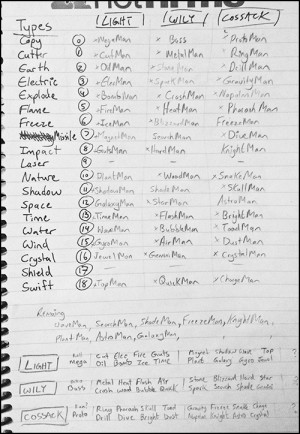 Types |LIGHT| |WILY| |COSSACK|
Copy 0 ×MegaMan × Bass ×ProtoMan
Cutter 1 ×CutMan ×MetalMan ×RingMan
Earth 2 ×OilMan ×StoneMan ×DrillMan
Electric 3 ×ElecMan ×SparkMan ×GravityMan
Explode 4 ×BombMan ×CrashMan ×NapalmMan
Flame 5 ×FireMan ×HeatMan ×PharaohMan
Freeze 6 ×IceMan ×BlizzardMan FreezeMan
Missile 7 ×MagnetMan SearchMan ×DiveMan
Impact 8 ×GutsMan ×HardMan KnightMan
Laser 9 — — —
Nature 10 PlantMan ×WoodMan ×SnakeMan
Shadow 11 ShadowMan ShadeMan ×SkullMan
Space 12 GalaxyMan ×StarMan AstroMan
Time 13 ×TimeMan ×FlashMan ×BrightMan
Water 14 WaveMan ×BubbleMan ×ToadMan
Wind 15 ×GyroMan ×AirMan ×DustMan
Crystal 16 JewelMan ×GeminiMan ×CrystalMan
Shield 17 —
Swift 18 ×TopMan ×QuickMan ×ChargeMan
WaveMan, SearchMan, ShadeMan, FreezeMan, KnightMan,
PlantMan, AstroMan, GalaxyMan,
LIGHT Mega Cut Elec Fire Guts Magnet Shadow Wave Top ?
Oil Bomb Ice Time Plant Galaxy Gyro Jewel
WILY Bass Metal Heat Flash Air Stone Blizzard Hard Star ?
Crash Wood Bubble Quick Spark Search Shade Gemini
COSSACK Proto Ring Pharaoh Skull Toad Gravity Freeze Snake Charge ?
Drill Dive Bright Dust Napalm Knight Astro Crystal